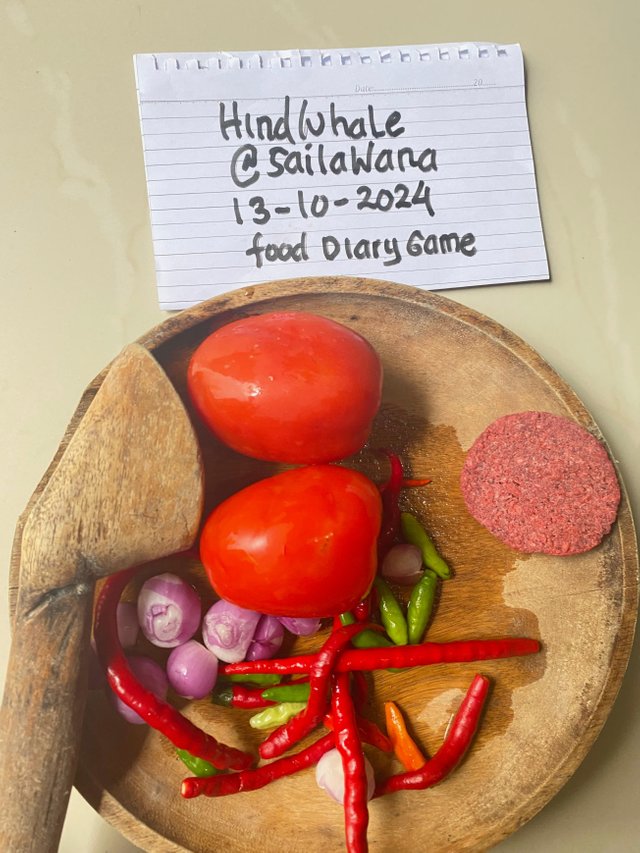 Date: 20
HindWhale
@sailaWana
13-10-2024
food Diary Game